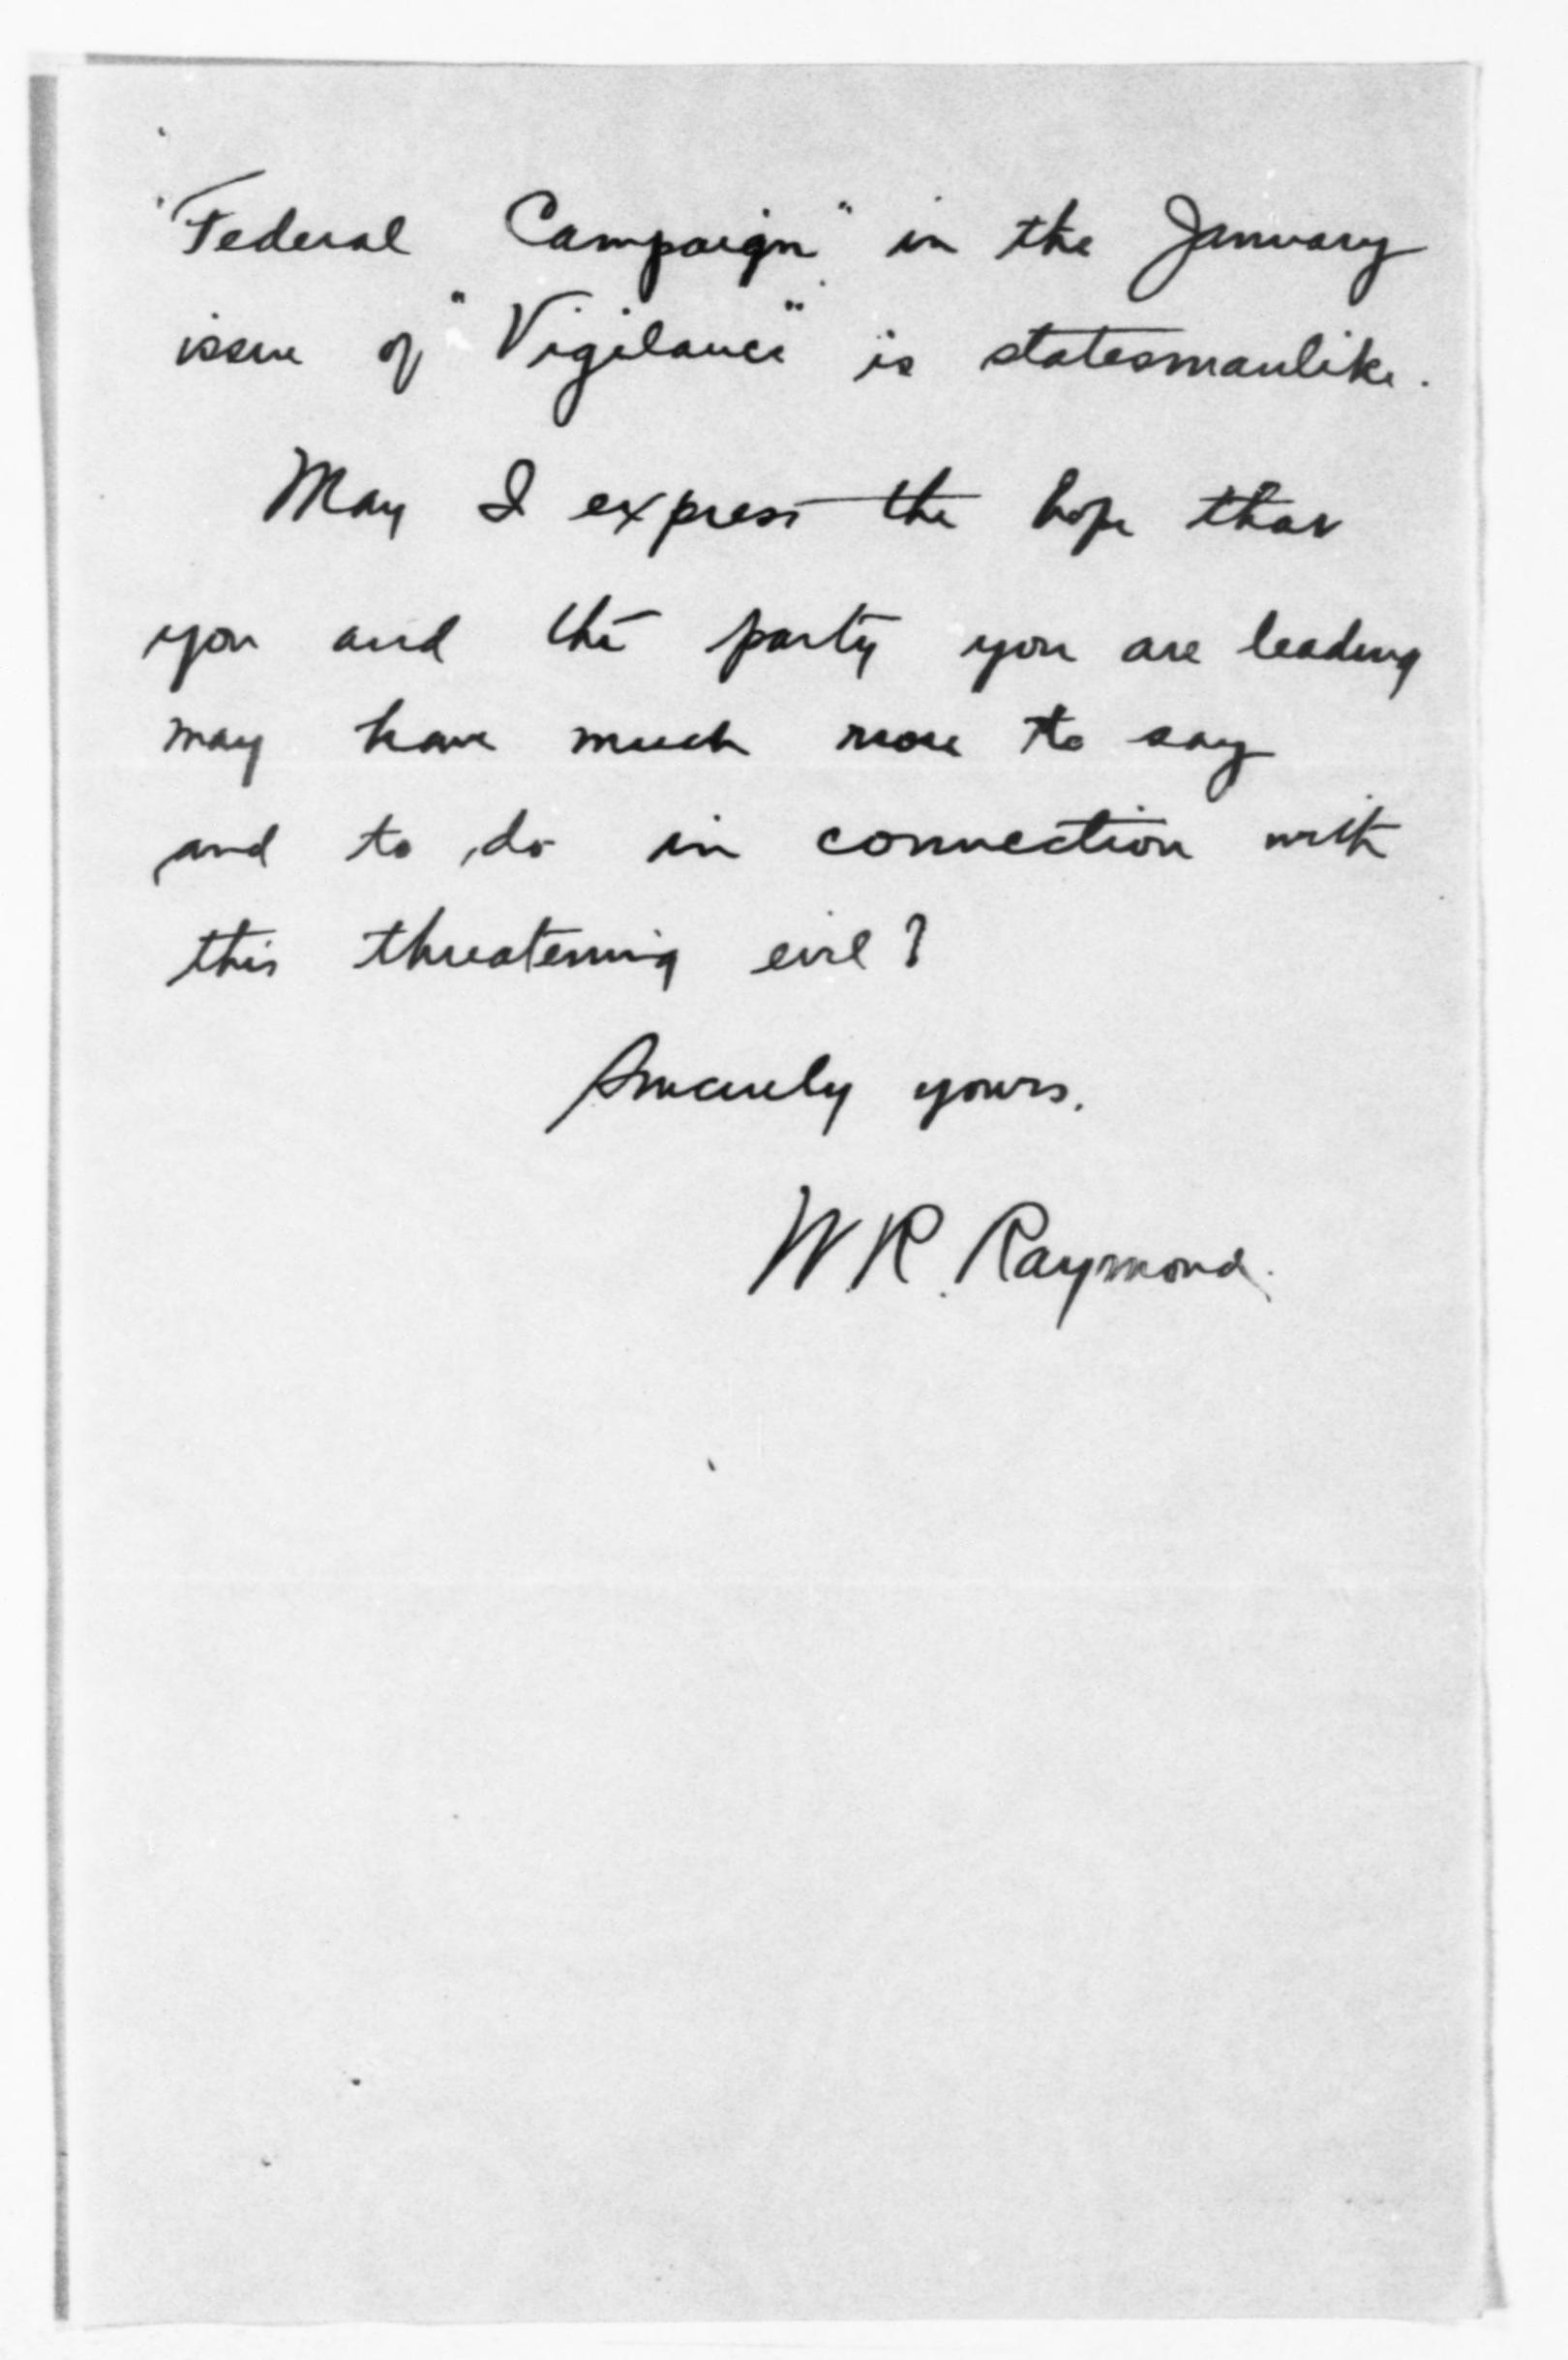 "Federal Campaign" in the January
issue of "Vigilance" is statesmanlike.
May I express the hope that
you and the party you are leading
may have much more to say
and to do in connection with
this threatening evil?
Sincerely yours,
W. R. Raymond.